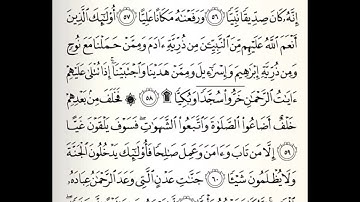 إِنَّهُۥ كَانَ صِدِّيقًا نَّبِيًّا ۝٥٦ وَرَفَعْنَٰهُ مَكَانًا عَلِيًّا ۝٥٧ أُو۟لَٰٓئِكَ ٱلَّذِينَ
أَنْعَمَ ٱللَّهُ عَلَيْهِم مِّنَ ٱلنَّبِيِّـۧنَ مِن ذُرِّيَّةِ ءَادَمَ وَمِمَّنْ حَمَلْنَا مَعَ نُوحٍ
وَمِن ذُرِّيَّةِ إِبْرَٰهِيمَ وَإِسْرَٰٓءِيلَ وَمِمَّنْ هَدَيْنَا وَٱجْتَبَيْنَآ ۚ إِذَا تُتْلَىٰ عَلَيْهِمْ
ءَايَٰتُ ٱلرَّحْمَٰنِ خَرُّوا۟ سُجَّدًا وَبُكِيًّا ۩ ۝٥٨ ۞ فَخَلَفَ مِنۢ بَعْدِهِمْ
خَلْفٌ أَضَاعُوا۟ ٱلصَّلَوٰةَ وَٱتَّبَعُوا۟ ٱلشَّهَوَٰتِ ۖ فَسَوْفَ يَلْقَوْنَ غَيًّا
۝٥٩ إِلَّا مَن تَابَ وَءَامَنَ وَعَمِلَ صَٰلِحًا فَأُو۟لَٰٓئِكَ يَدْخُلُونَ ٱلْجَنَّةَ
وَلَا يُظْلَمُونَ شَيْـًٔا ۝٦٠ جَنَّٰتِ عَدْنٍ ٱلَّتِى وَعَدَ ٱلرَّحْمَٰنُ عِبَادَهُۥ